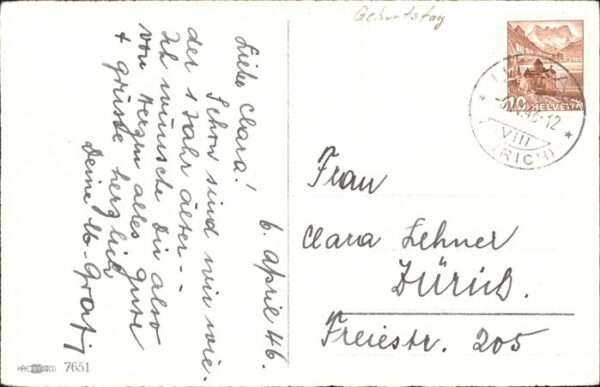 Geburtstag
6. April 46.
Liebe Clara!
Schon sind wir wie-
der 1 Jahr älter --
Ich wünsche Dir also
von Herzen alles Gute
+ grüsse herzlich
Deine
10 HELVETIA
VIII
Frau
Clara Lehner
Zürich.
Freiestr. 205
7651